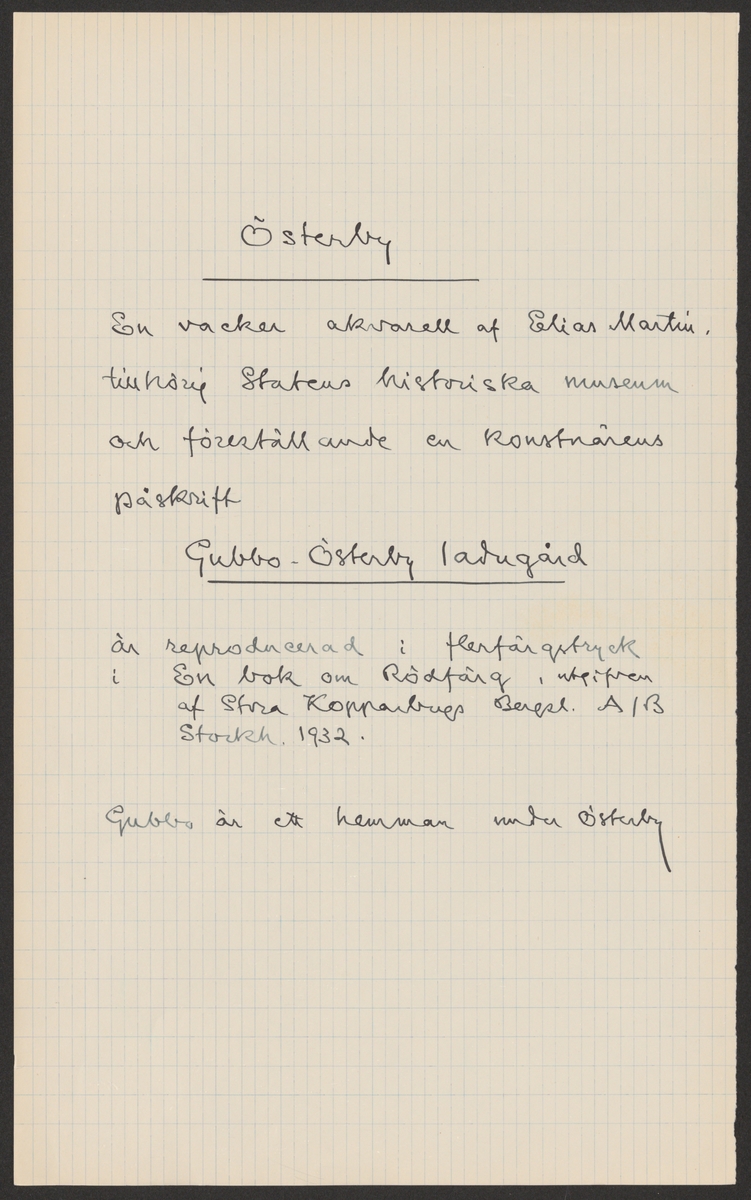 Österby
En vacker akvarell af Elias Martin,
tillhörig Statens historiska museum
och föreställande en konstnärens
påskrift
Gubbo-Österby ladugård
är reproducerad i flerfärgstryck
i En bok om Rödfärg, utgifven
af Stora Kopparbergs Bergsl. A/B
Stockh. 1932.
Gubbo är ett hemman under Österby